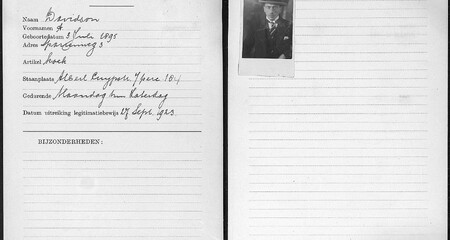 Naam Davidson
Voornamen A.
Geboortedatum 3 Juli 1895
Adres Sparrenweg 3
Artikel koek
Staanplaats Albert Cuypstr. 164
Gedurende Maandag t/m Zaterdag
Datum uitreiking legitimatiebewijs 27 Sept. 1923
BIJZONDERHEDEN: